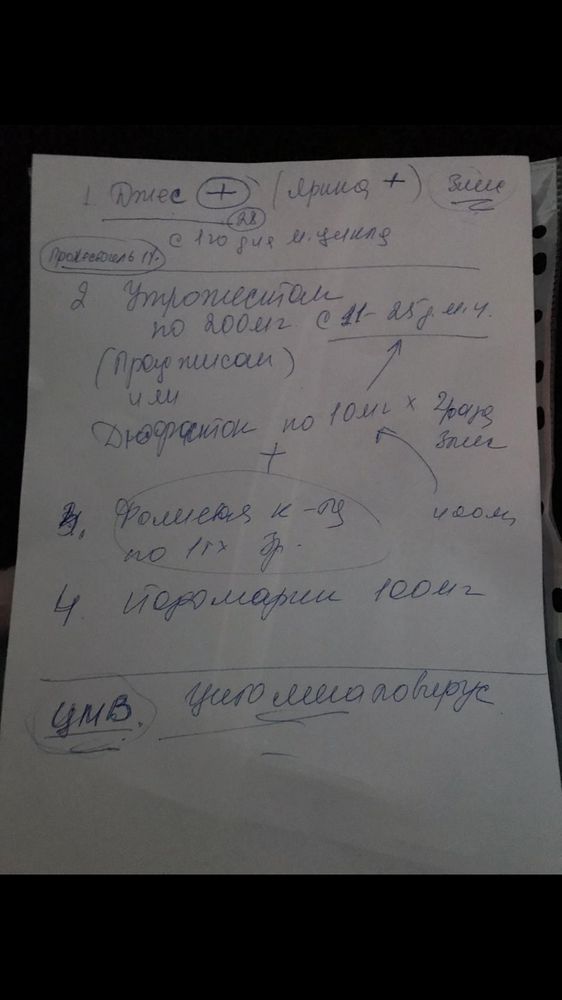 1. Джес + (Ярина +) 3 мес
28
с 1го дня м. цикла
Прожестожель 1%.
2 Утрожестан
по 200мг. с 11-25 д.м.ц.
(Праджисан)
или
Дюфастон по 10мг × 2 раза
3 мес
+
3. Фолиевая к-та
по 1т × 3р.
4. Йодомарин 100мг
ЦМВ. Цитомегаловирус